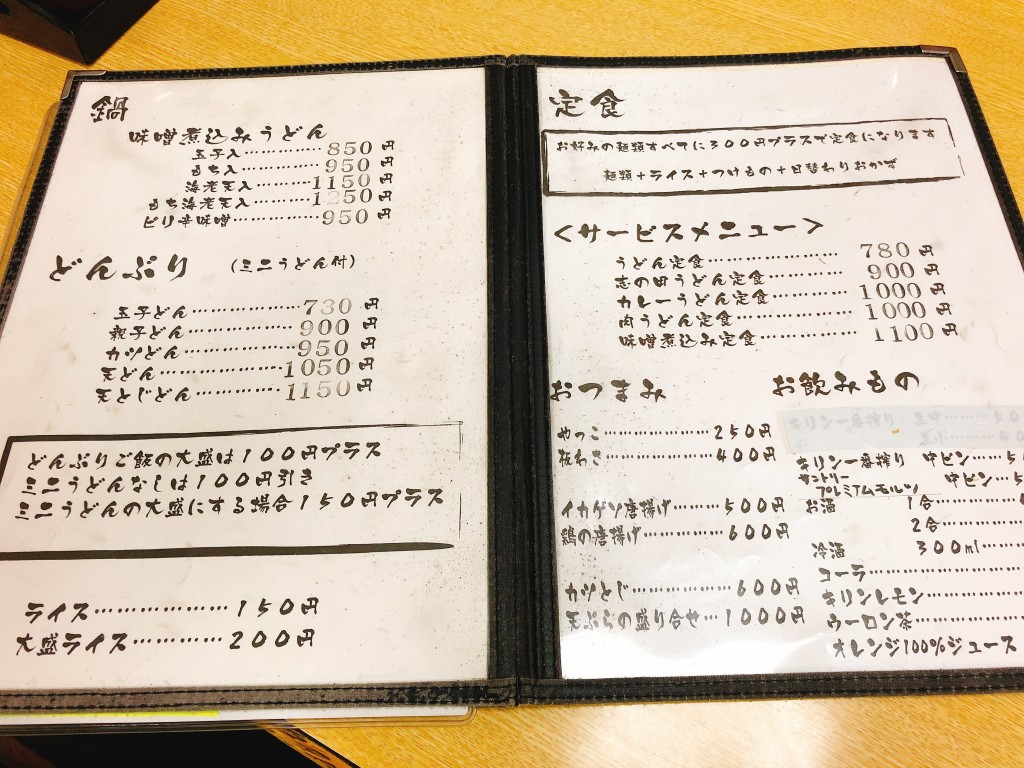 鍋
味噌煮込みうどん
玉子入…………850円
もち入…………950円
海老天入…………1150円
もち海老天入…………1250円
ピリ辛味噌…………950円
どんぶり (ミニうどん付)
玉子どん…………730円
親子どん…………900円
カツどん…………950円
天どん…………1050円
天とじどん…………1150円
どんぶりご飯の大盛は100円プラス
ミニうどんなしは100円引き
ミニうどんの大盛にする場合150円プラス
ライス…………150円
大盛ライス…………200円
定食
お好みの麺類すべてに300円プラスで定食になります
麺類+ライス+つけもの+日替わりおかず
<サービスメニュー>
うどん定食…………780円
志の田うどん定食…………900円
カレーうどん定食…………1000円
肉うどん定食…………1000円
味噌煮込み定食…………1100円
おつまみ
やっこ…………250円
板わさ…………400円
イカゲソ唐揚げ…………500円
鶏の唐揚げ…………600円
カツとじ…………600円
天ぷらの盛り合せ…1000円
お飲みもの
キリン一番搾り 生中…………
生小…………
キリン一番搾り 中ビン……
サントリー
プレミアムモルツ 中ビン……
お酒 1合…………
2合…………
冷酒 300ml……
コーラ…………
キリンレモン…………
ウーロン茶…………
オレンジ100%ジュース